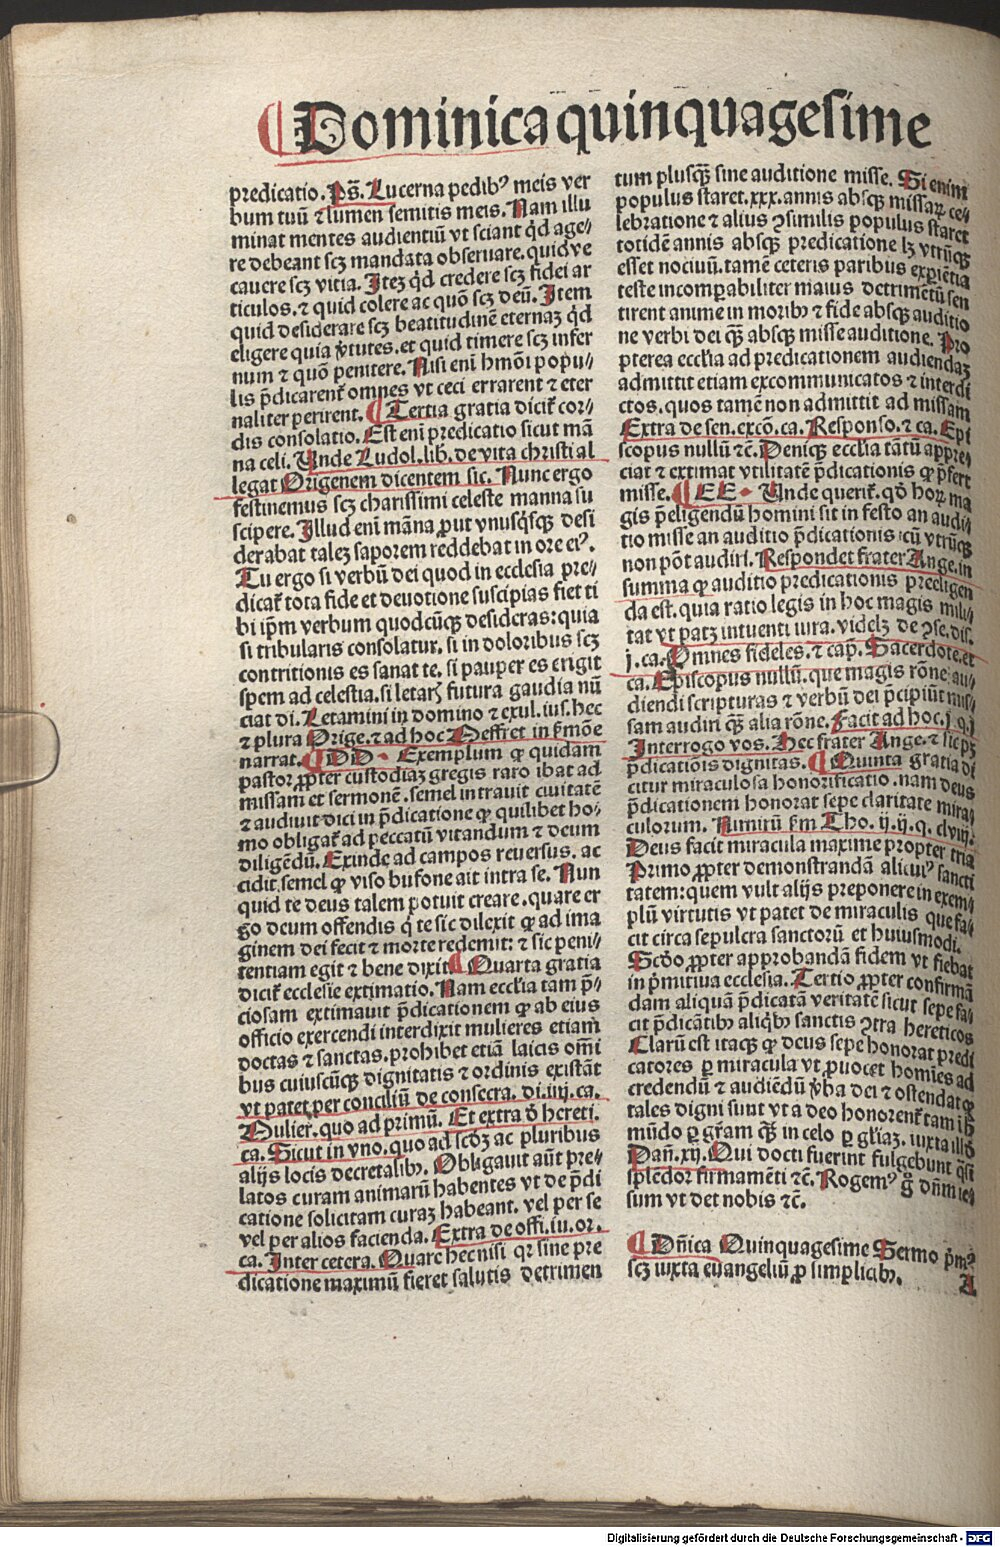 Dominica quinquagesime
predicatio. Ps̄. Lucerna pedibꝰ meis ver
bum tuū ⁊ lumen semitis meis. Nam illu
minat mentes audientiū vt sciant qd̓ age⸗
re debeant scꝫ mandata obseruare. quid ve
cauere scꝫ vitia. Iteꝫ qd̓ credere scꝫ fidei ar
ticulos. ⁊ quid colere ac quō scꝫ deū. Item
quid desiderare scꝫ beatitudinē eternaꝫ qd̓
eligere quia v̓tutes. et quid timere scꝫ infer
num ⁊ quō penitere. Nisi enī hmōi popu⸗
lis p̄dicarent᷑ omnes vt ceci errarent ⁊ eter
naliter perirent. ¶ Tertia gratia dicit᷑ cor⸗
dis consolatio. Est enī predicatio sicut mā
na celi. Unde Ludol. lib. de vita christi al
legat Origenem dicentem sic. Nunc ergo
festinemus scꝫ charissimi celeste manna su
scipere. Illud enī māna ꝓut vnusq̓sqꝫ desi
derabat taleꝫ saporem reddebat in ore eiꝰ.
Tu ergo si verbū dei quod in ecclesia pre⸗
dicat᷑ tota fide et deuotione suscipias fiet ti
bi ip̄m verbum quodcūqꝫ desideras: quia
si tribularis consolatur. si in doloribus scꝫ
contritionis es sanat te. si pauper es erigit
spem ad celestia. si letarꝭ futura gaudia nū
ciat di. Letamini in domino ⁊ exul. ius. hec
⁊ plura Orige. ⁊ ad hoc Meffret in s̓mōe
narrat. ¶ DD • Exemplum ꝙ quidam
pastor ꝓpter custodiaꝫ gregis raro ibat ad
missam et sermonē. semel intrauit ciuitatē
⁊ audiuit dici in p̄dicatione ꝙ quilibet ho⸗
mo obligat᷑ ad peccatū vitandum ⁊ deum
diligēdū. Exinde ad campos reuersus. ac
cidit semel ꝙ viso bufone ait intra se. Nun
quid te deus talem potuit creare. quare er
go deum offendis q̓ te sic dilexit ꝙ ad ima
ginem dei fecit ⁊ morte redemit: ⁊ sic peni⸗
tentiam egit ⁊ bene dixit ¶ Quarta gratia
dicit᷑ ecclesie extimatio. Nam eccl̓ia tam p̄⸗
ciosam extimauit p̄dicationem ꝙ ab eius
officio exercendi interdixit mulieres etiam
doctas ⁊ sanctas. prohibet etiā laicis om̄i
bus cuiuscūqꝫ dignitatis ⁊ ordinis existāt
vt patet per conciliū de consecra. di. iiij. ca.
Mulier. quo ad primū. Et extra d̓ hereti.
ca. Sicut in vno. quo ad scd̓ꝫ ac pluribus
alijs locis decretalibꝰ. Obligauit aūt pre⸗
latos curam animarū habentes vt de p̄di
catione solicitam curaꝫ habeant. vel per se
vel per alios facienda. Extra de offi. iu. or.
ca. Inter cetera. Quare hec nisi qꝛ sine pre
dicatione maximū fieret salutis detrimen
tum plusqꝫ̄ sine auditione misse. Si enim
populus staret. xxx. annis absqꝫ missaꝝ ce⸗
lebratione ⁊ alius ꝯsimilis populus staret
totidē annis absqꝫ predicatione lꝫ vtrūqꝫ
esset nociuū. tamē ceteris paribus exꝑiētia
teste incomꝑabiliter maius detrimētū sen
tirent anime in moribꝰ ⁊ fide absqꝫ auditio
ne verbi dei qꝫ̄ absqꝫ misse auditione. Pro
pterea eccl̓ia ad predicationem audiendaꝫ
admittit etiam excommunicatos ⁊ interdi
ctos. quos tamē non admittit ad missam
Extra de sen. excō. ca. Responso. ⁊ ca. Epi
scopus nullū ⁊c̄. Deniqꝫ eccl̓ia tātū appre⸗
ciat ⁊ extimat vtilitatē p̄dicationis ꝙ p̄fert
misse. ¶ EE • Unde querit᷑. qd̓ hoꝝ ma
gis p̄eligendū homini sit in festo an audi⸗
tio misse an auditio p̄dicationis cū vtrūqꝫ
non pōt audiri. Respondet frater Ange. in
summa ꝙ auditio predicationis preeligen
da est. quia ratio legis in hoc magis mili⸗
tat vt patꝫ intuenti iura. videlꝫ de ꝯse. dis.
j. ca. Omnes fideles. ⁊ cap. Sacerdote. et
ca. Episcopus nullū. que magis rōne au⸗
diendi scripturas ⁊ verbū dei p̄cipiūt mis⸗
sam audiri qꝫ̄ alia rōne. Facit ad hoc. j. q. j
Interrogo vos. Hec frater Ange. ⁊ sic pꝫ
p̄dicatiōis dignitas. ¶ Quinta gratia di
citur miraculosa honorificatio. nam deus
p̄dicationem honorat sepe claritate mira⸗
culorum. Nimirū s̓m Tho. ij. ij. q. clviij.
Deus facit miracula maxime propter tria
Primo ꝓpter demonstrandā alicuiꝰ sancti
tatem: quem vult alijs preponere in exem⸗
plū virtutis vt patet de miraculis que fa⸗
cit circa sepulcra sanctorū et huiusmodi.
Scd̓o ꝓpter approbandā fidem vt fiebat
in p̓mitiua ecclesia. Tertio ꝓpter confirmā
dam aliquā p̄dicatā veritatē sicut sepe fa⸗
cit p̄dicātibꝰ aliq̓bꝰ sanctis ꝯtra hereticos
Clarū est itaqꝫ ꝙ deus sepe honorat predi
catores ꝑ miracula vt ꝓuocet homīes ad
credendū ⁊ audiēdū v̓ba dei ⁊ ostendat ꝙ
tales digni sunt vt a deo honorent᷑ tam ī h̓
mūdo ꝑ gr̄am qꝫ̄ in celo ꝑ gl̓iaꝫ. iuxta illd̓
Dan̄. xij. Qui docti fuerint fulgebunt q̓si
splēdor firmamēti ⁊c̄. Rogemꝰ g̓ dn̄m ie⸗
sum vt det nobis ⁊c̄.
¶ Dn̄ica Quinquagesime Sermo p̓mꝰ
scꝫ iuxta euangeliū ꝓ simplicibꝰ. A
Digitalisierung gefördert durch die Deutsche Forschungsgemeinschaft - DFG